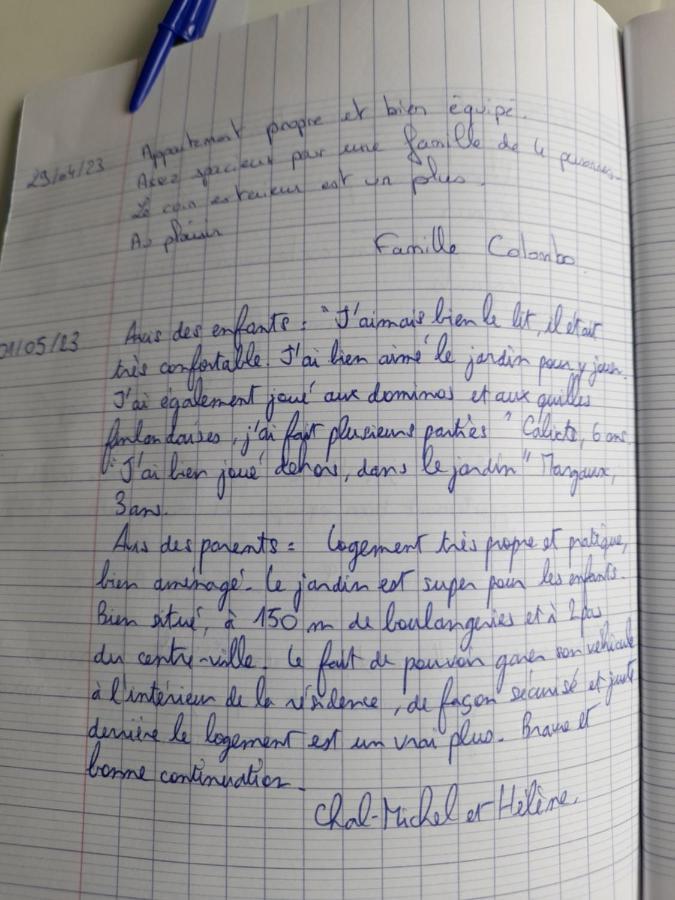 29/04/23 Appartement propre et bien équipé.
Assez spacieux par une famille de 4 personnes.
Le coin exterieur est un plus.
Au plaisir
Famille Colombo.
01/05/23 Avis des enfants : "J'aimais bien le lit, il était
très confortable. J'ai bien aimé le jardin pour y jouer.
J'ai également joué aux dominos et aux quilles
finlandaises, j'ai fait plusieurs parties" 6 ans,
"J'ai bien joué dehors, dans le jardin" Margaux,
3 ans.
Avis des parents : Logement très propre et pratique,
bien aménagé. Le jardin est super pour les enfants.
Bien situé, à 150 m de boulangeries et à 2 pas
du centre-ville. Le fait de pouvoir garer son véhicule
à l'intérieur de la résidence, de façon sécurisé et juste
derrière le logement est un vrai plus. Bravo et
bonne continuation.
Michel et Hélène.